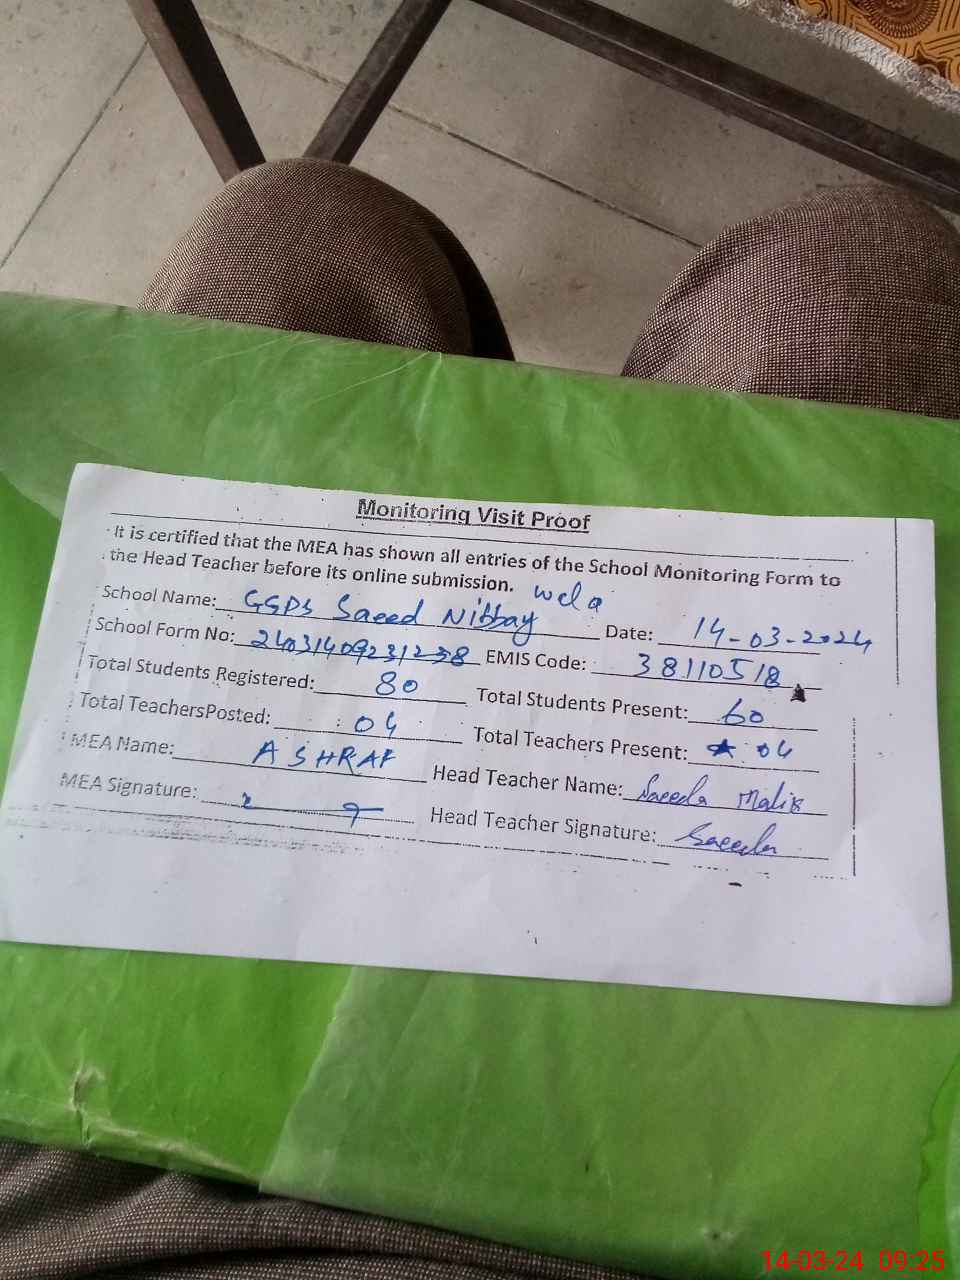 Monitoring Visit Proof
It is certified that the MEA has shown all entries of the School Monitoring Form to
the Head Teacher before its online submission.
School Name: GSPS Saeed Nibbay wela Date: 14-03-2024
School Form No: 24031409231238 EMIS Code: 38110518
Total Students Registered: 80 Total Students Present: 60
Total TeachersPosted: 04 Total Teachers Present: 04
MEA Name: ASHRAF Head Teacher Name: Saeeda Malik
MEA Signature: Head Teacher Signature: Saeeda
14-03-24 09:25